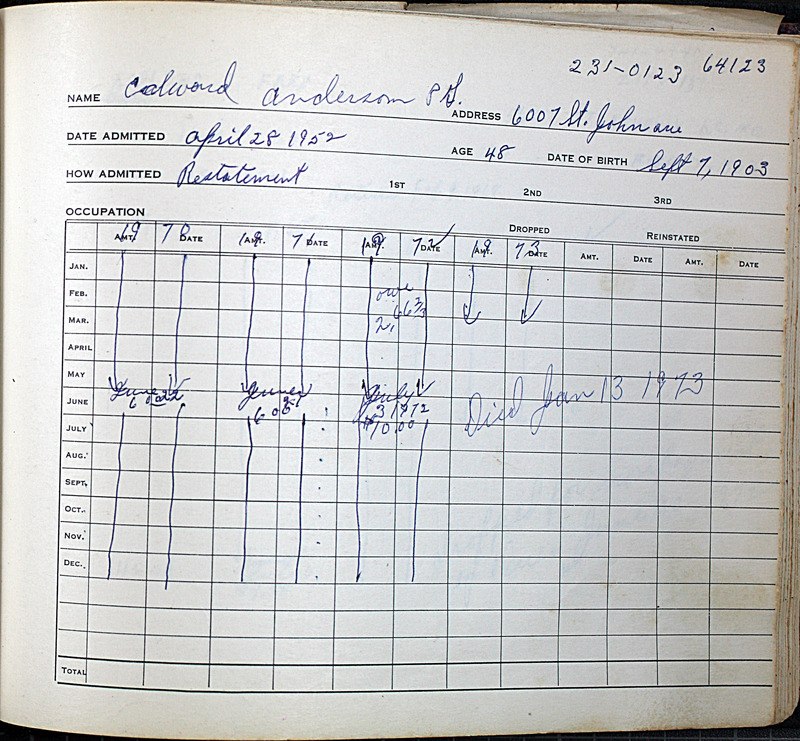 231-0123 64123
NAME Edward Anderson P G. ADDRESS 6007 St. John ave
DATE ADMITTED April 28 1952 AGE 48 DATE OF BIRTH Sept 7, 1903
HOW ADMITTED Restatement 1ST 2ND 3RD
OCCUPATION DROPPED REINSTATED
19 70 19 71 19 72 19 73
AMT. DATE AMT. DATE AMT. DATE AMT. DATE AMT. DATE AMT. DATE
JAN.
FEB. owe
MAR. 2,66 2/3
APRIL
MAY
June June July
JUNE 6 00 6 00 31972 Died Jan 13 1973
JULY $10.00
AUG.
SEPT.
OCT.
NOV.
DEC.
TOTAL